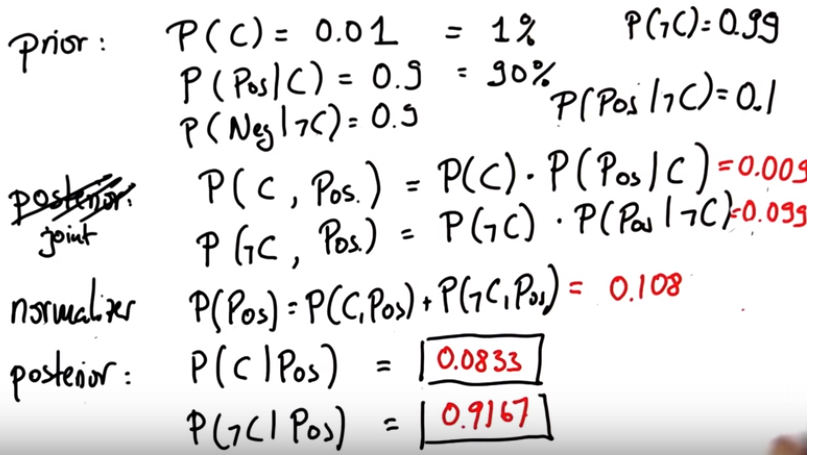 prior: P(C) = 0.01 = 1% P(¬C) = 0.99
P(Pos|C) = 0.9 = 90%
P(Neg|¬C) = 0.9 P(Pos|¬C) = 0.1
posterior: P(C, Pos.) = P(C) · P(Pos|C) = 0.009
joint P(¬C, Pos.) = P(¬C) · P(Pos|¬C) = 0.099
normalizer P(Pos) = P(C,Pos) + P(¬C,Pos) = 0.108
posterior: P(C|Pos) = 0.0833
P(¬C|Pos) = 0.9167